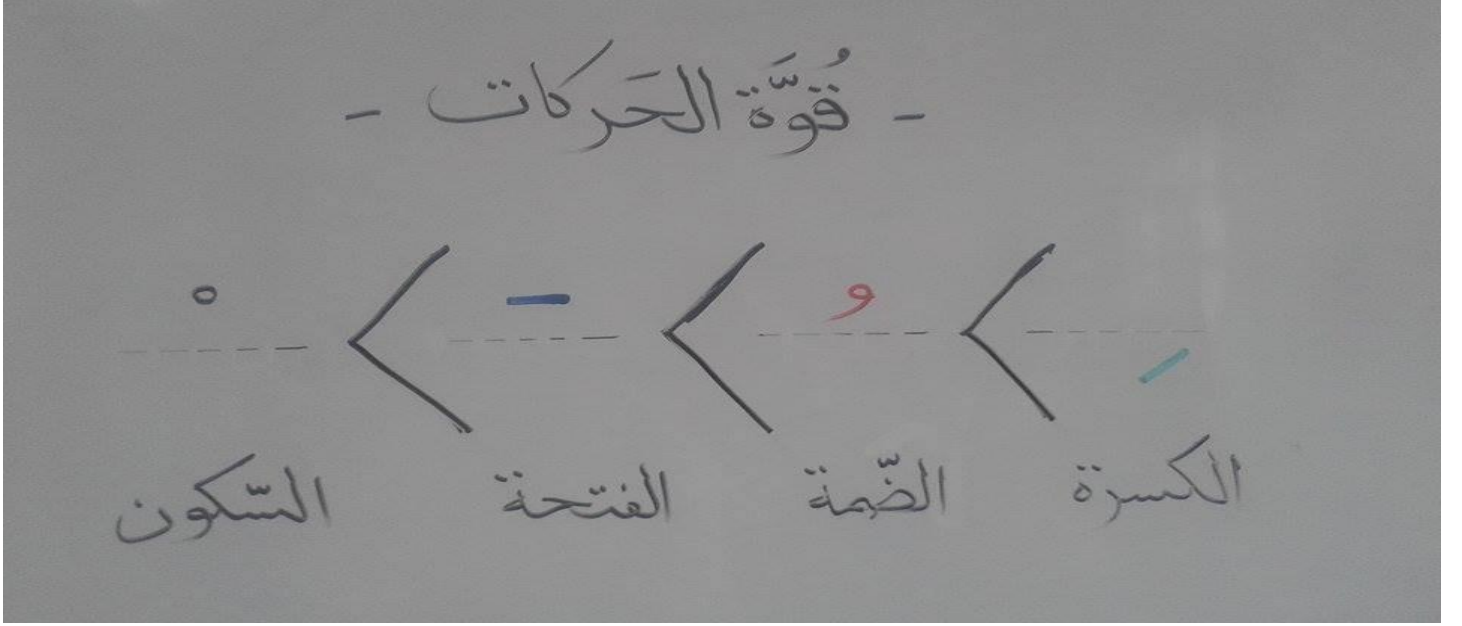 - قُوَّة الحَركات -
ِ < ُ < َ < ْ
الكسرة الضّمة الفتحة السّكون